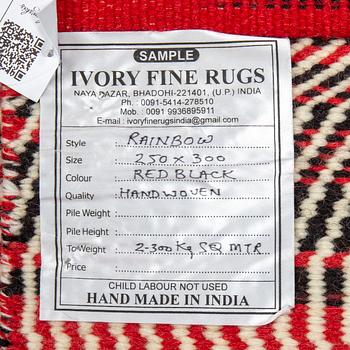 SAMPLE
IVORY FINE RUGS
NAYA BAZAR, BHADOHI-221401, (U.P.) INDIA
Ph. : 0091-5414-278510
Mob. : 0091 9936895911
E-mail : ivoryfinerugsindia@gmail.com
Style RAINBOW
Size 250 x 300
Colour RED BLACK
Quality HANDWOVEN
Pile Weight
Pile Height
To Weight 2-300 Kg SQ MTR
Price
CHILD LABOUR NOT USED
HAND MADE IN INDIA